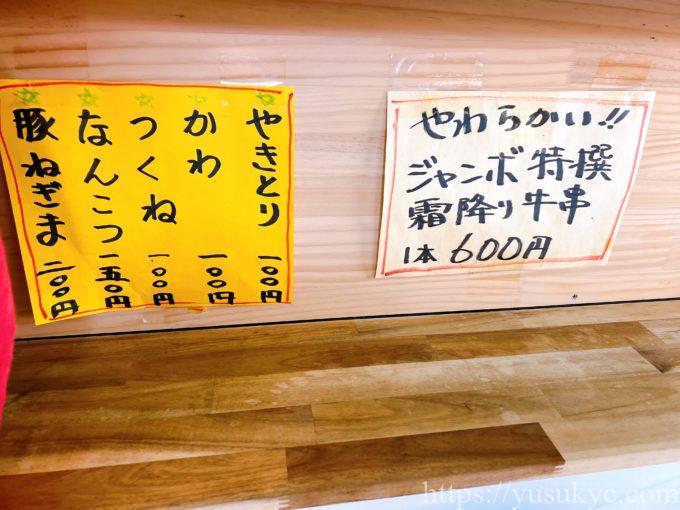 やきとり 一〇〇円
かわ 一〇〇円
つくね 一〇〇円
なんこつ 一五〇円
豚ねぎま 二〇〇円
やわらかい!!
ジャンボ特撰
霜降り牛串
1本 600円
https://yusukyc.com